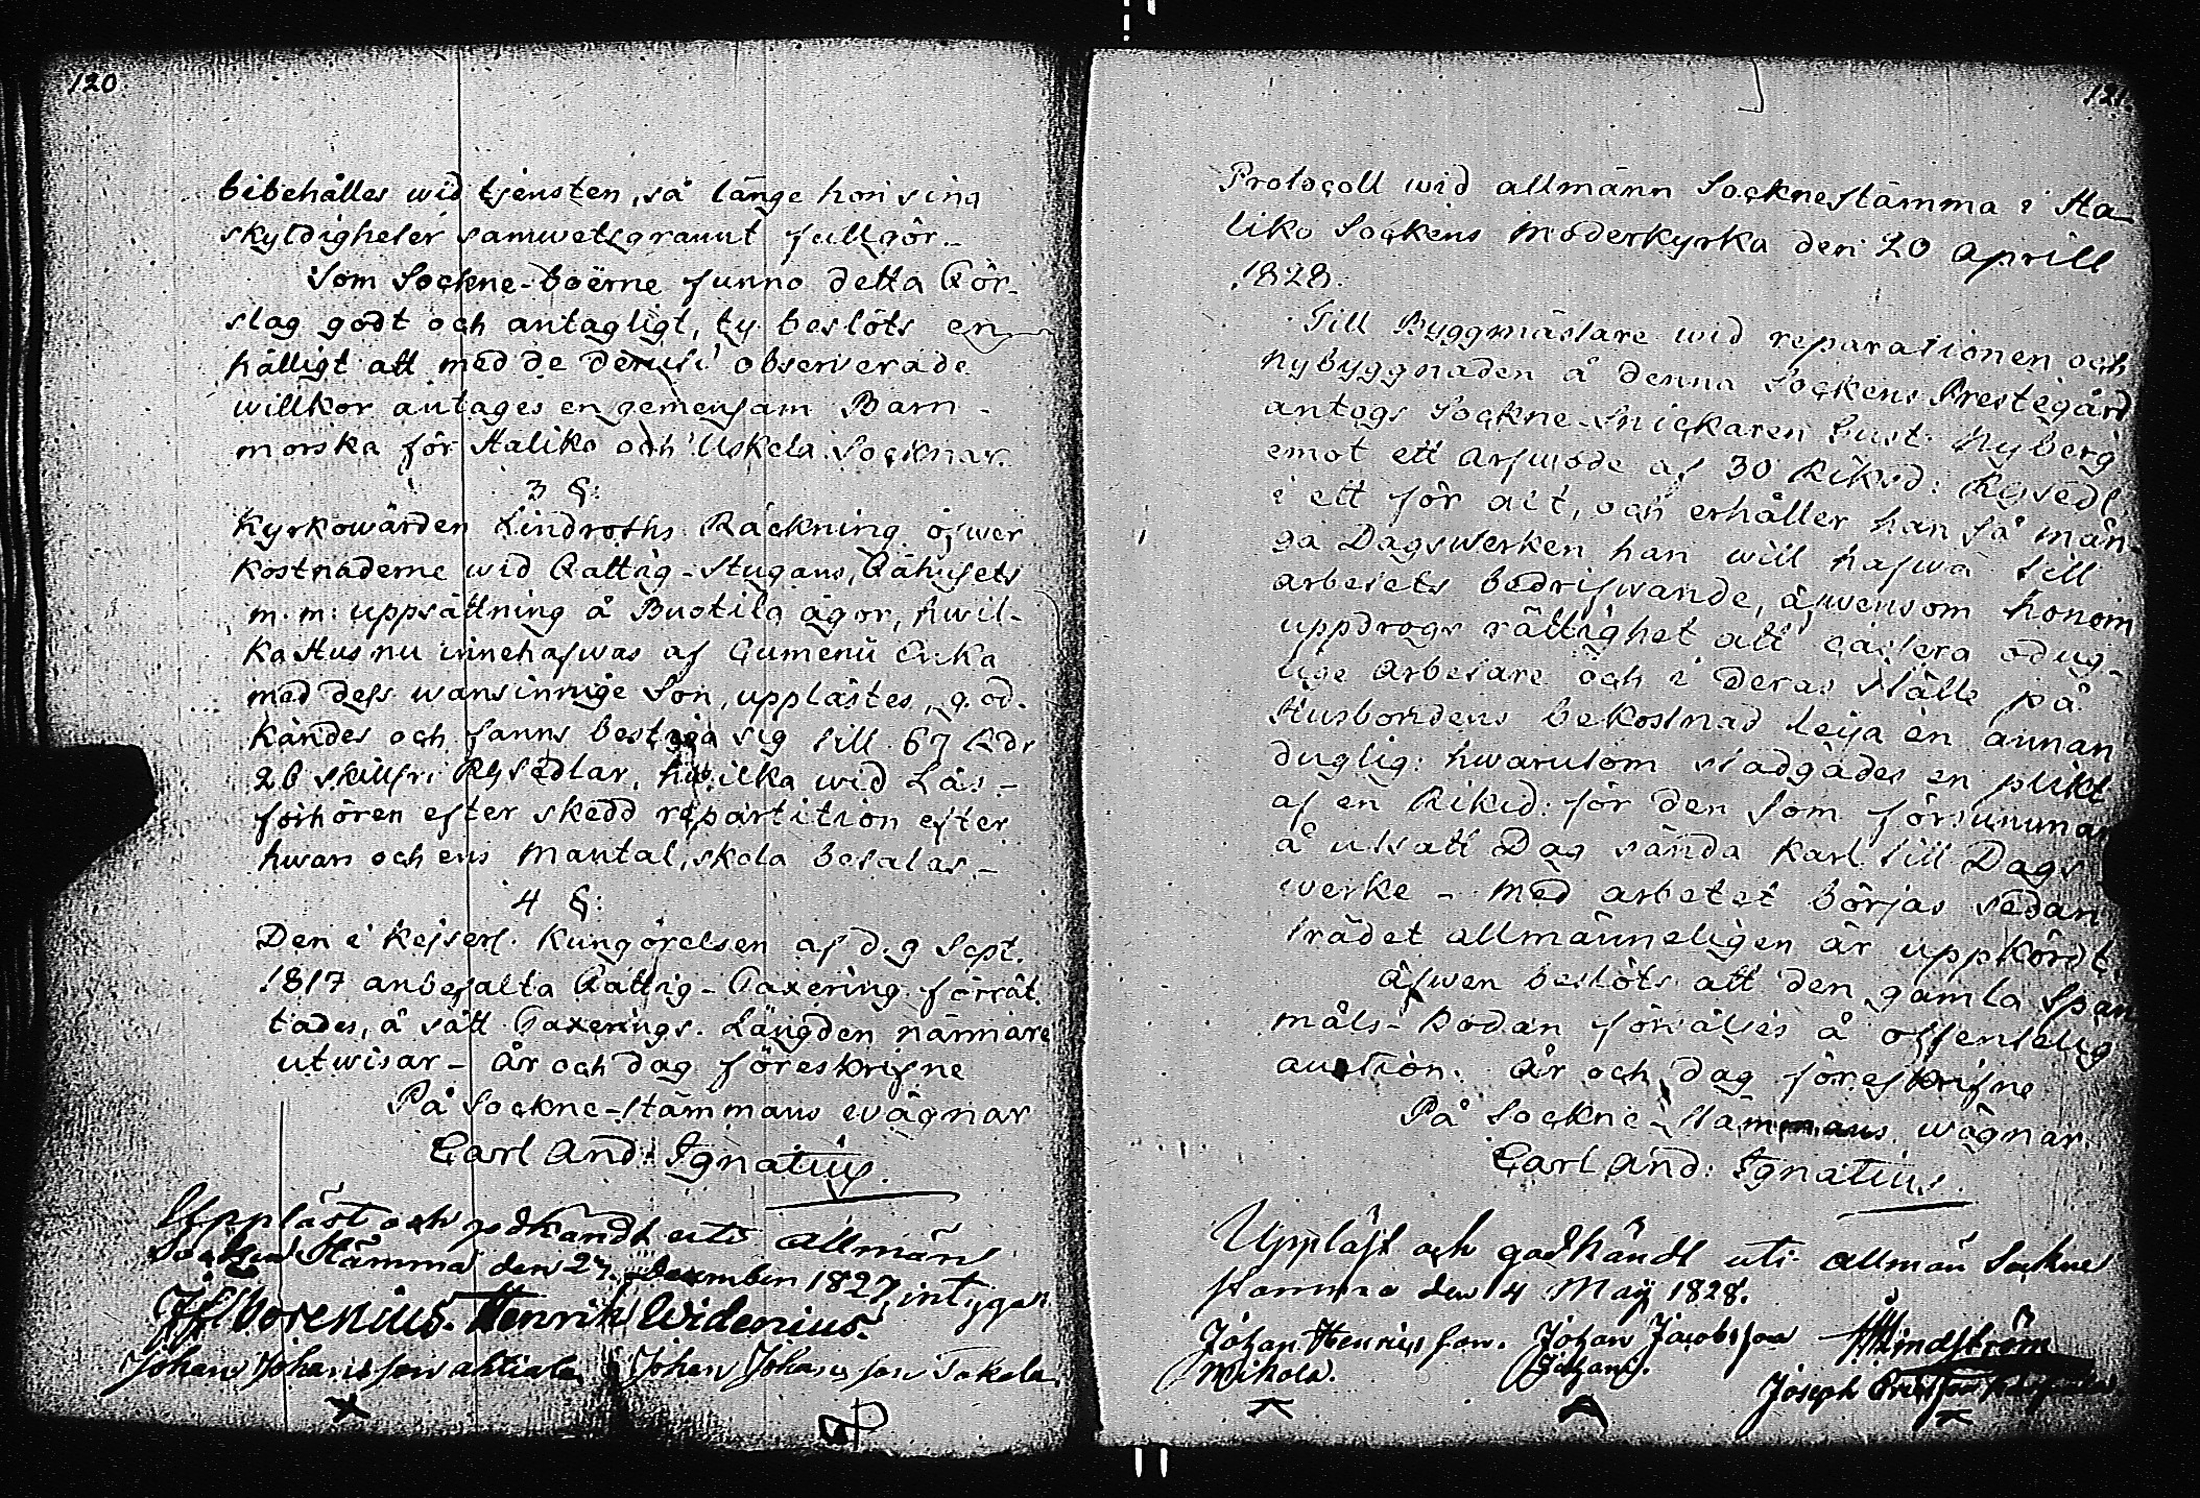 120.
bibehålles wid tjensten, så länge hon sina
skyldigheter samwetsgrannt fullgör. -
Som Sockne-boërne funno detta För-
slag godt och antagligt, ty beslöts en
hälligt att med de deruti observerade
willkor antages en gemensam Barn-
morska för Haliko och Uskela Socknar.
3 §:
Kyrkowärden Lindroths Räckning öfwer
kostnaderne wid Fattig-Stugans, Fähusets
m. m: uppsättning å Buotila ägor, hwil-
ka Hus nu innehafwas af Gumenu Erika
med dess wansinnige Son, upplästes, god-
kändes och fanns bestiga sig till 67 Rdr
26 skill: Rgsedlar, hwilka wid Läs-
förhören efter skedd repartition efter
hwars och ens Mantal, skola betalas. -
4 §:
Den i Kejserl. Kungörelsen af d. 9 Sept.
1817 anbefalta Fattig-Taxering förrät-
tades, å sätt Taxerings-Längden närmare
utwisar - År och dag föreskrifne
På Sockne-Stämmans wägnar
Carl And: Ignatius
Uppläst och godkändt uti allmän
Sockne Stämma den 27 December 1827, intygar
Henrik Widenius.
Johan Johansson Johan Johansson

121.
Protocoll wid allmänn Socknestämma i Ha-
liko Sockens Moderkyrka den 20 Aprill
1828.
Till Byggmästare wid reparationen och
nybyggnaden å denna Sockens Prestegård
antogs Sockne-Snickaren Gust. Nyberg
emot ett arfwode af 30 Riksd: Rgsedl.
i ett för alt, och erhåller han så mån-
ga Dagswerken han will hafwa till
arbetets bedrifwande, äfwensom honom
uppdrogs rättighet att cassera odug-
lige arbetare och i deras ställe på
Husbondens bekostnad leija en annan
duglig: hwarutom stadgades en plikt
af en Riksd: för den som försummar
å utsatt Dag sända Karl till Dags
werke - Med arbetet börjas sedan
trädet allmänneligen är uppkördt.
Äfwen beslöts att den gamla Span
måls-Bodan försäljes å offentelig
auction. År och dag föreskrifne
På Sockne-Stämmans wägnar.
Carl And: Ignatius.
Uppläst och godkändt uti allmän Sockne
stamma den 4 Maij 1828.
Johan Henricsson. Johan Jacobsson Lindström
Mikola.
Joseph